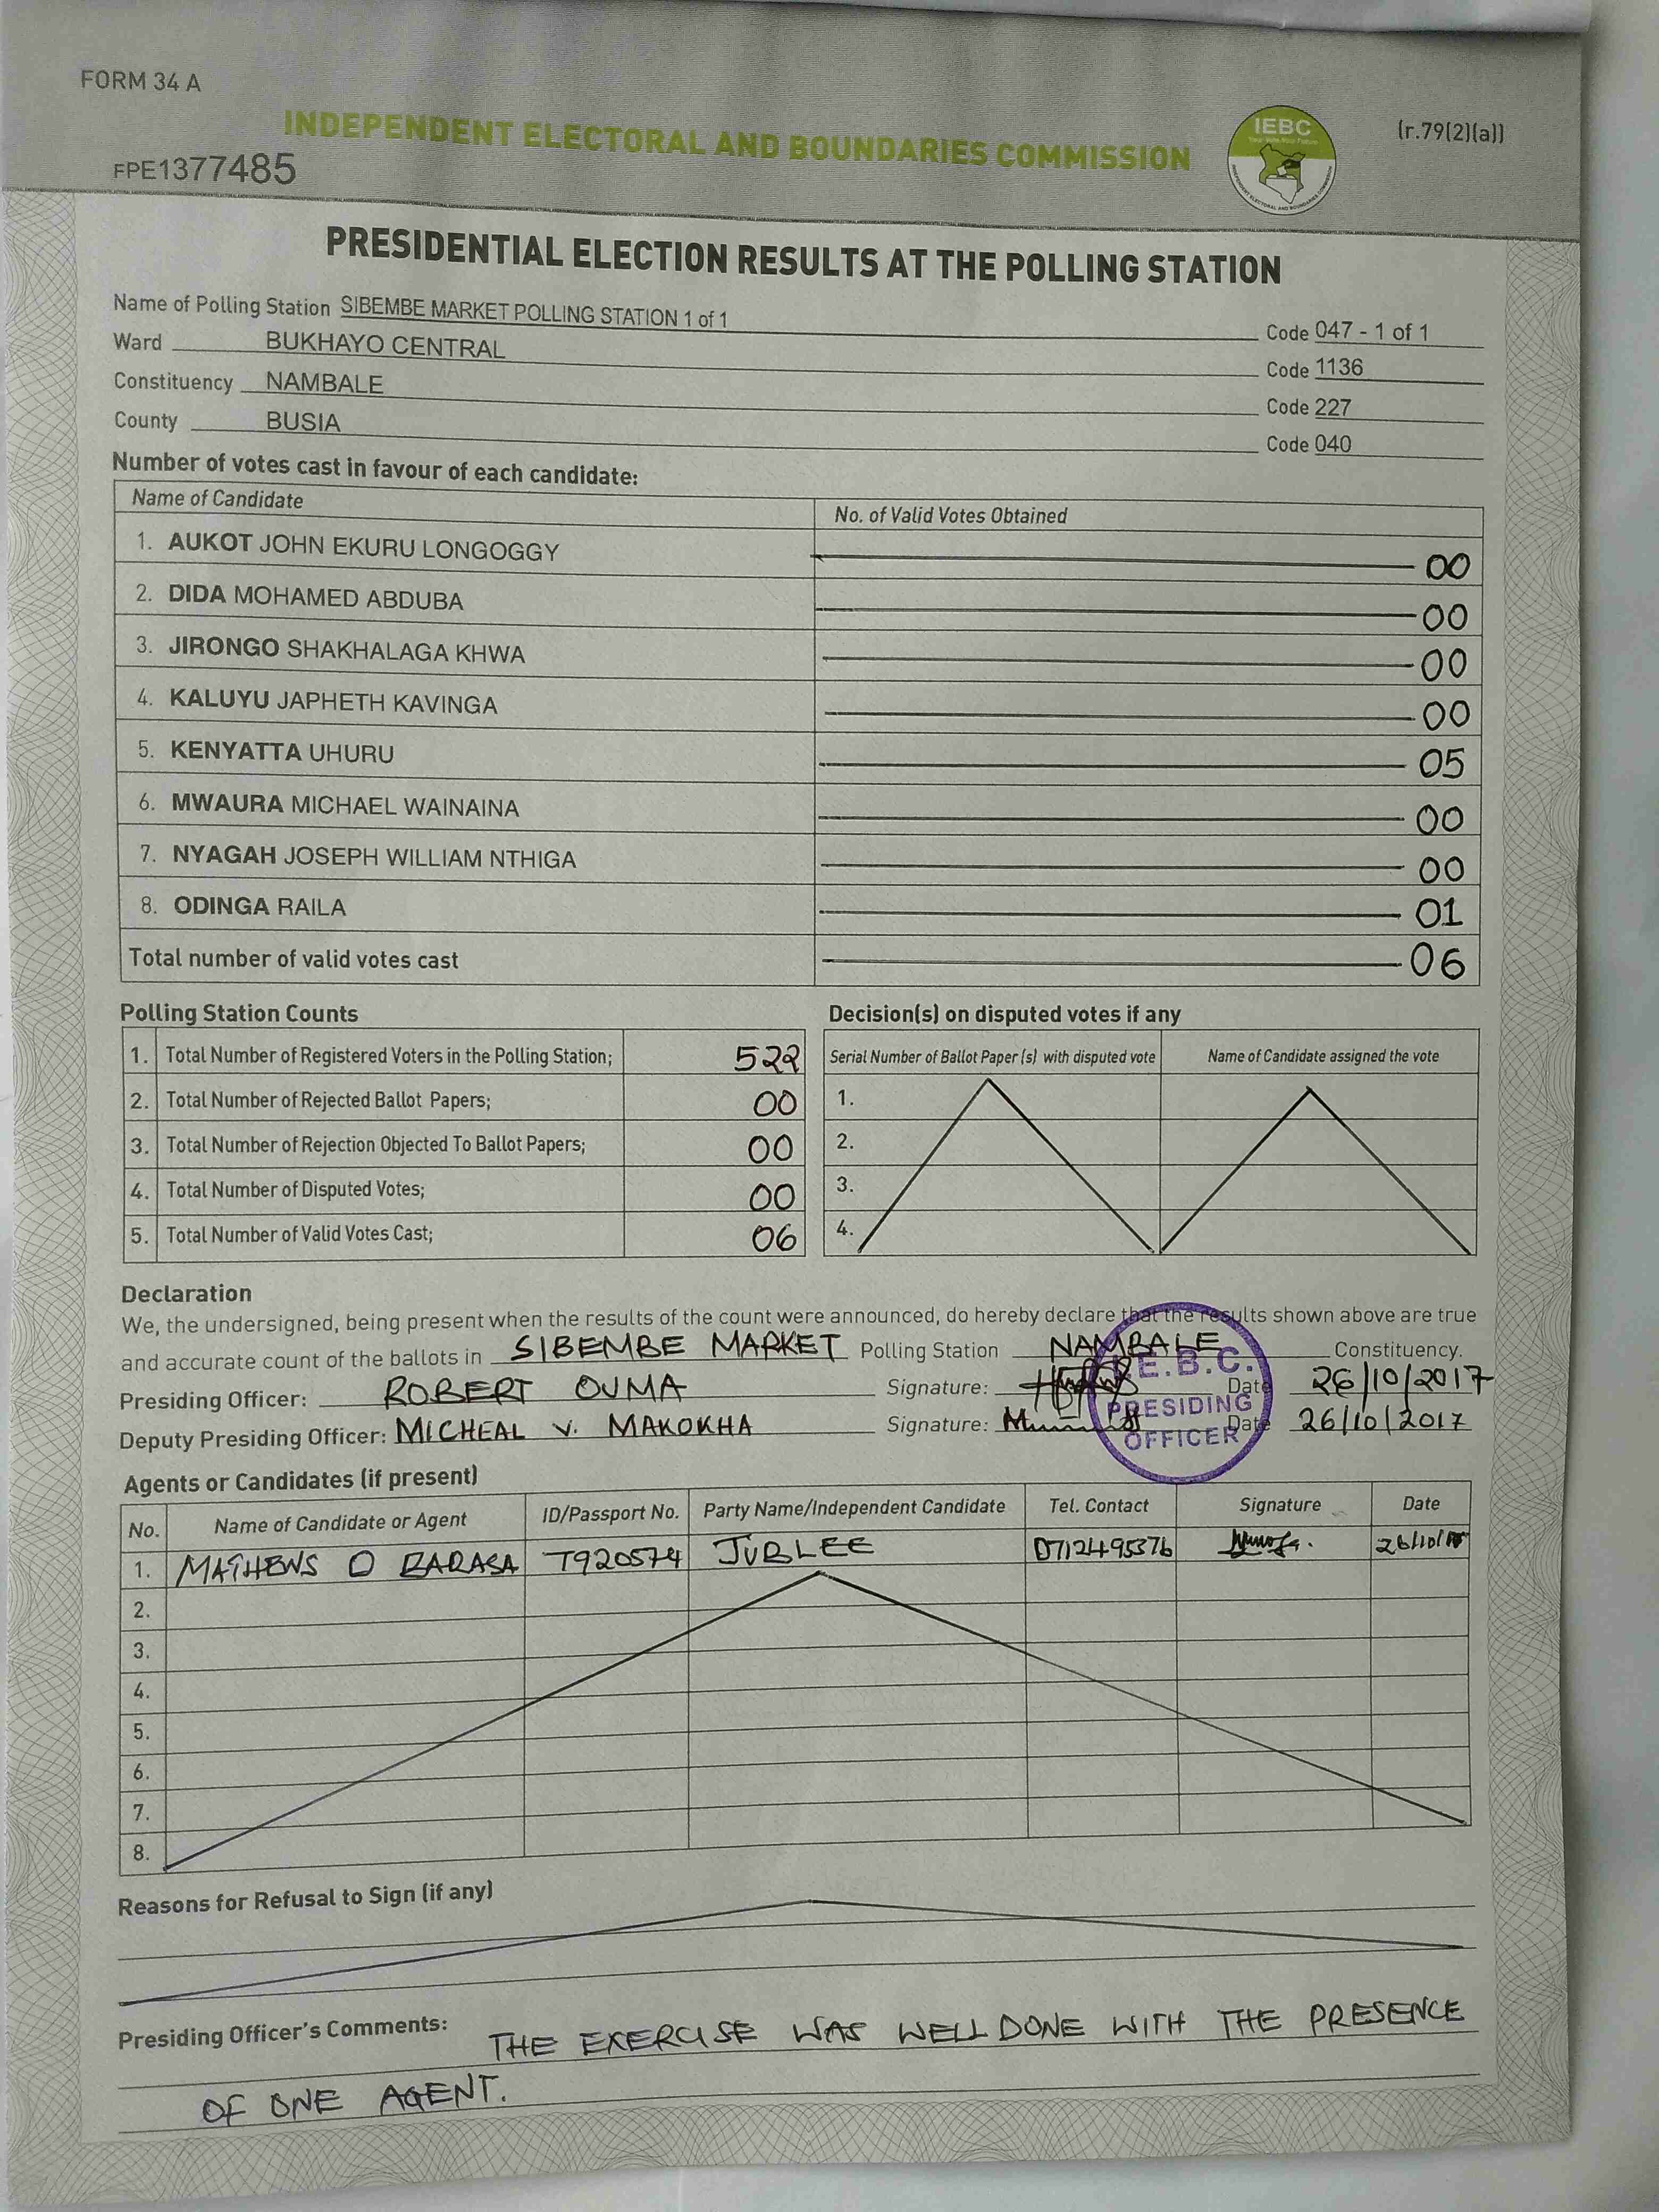 FORM 34 A
INDEPENDENT ELECTORAL AND BOUNDARIES COMMISSION
IEBC
(r.79(2)(a))
FPE1377485
PRESIDENTIAL ELECTION RESULTS AT THE POLLING STATION
Name of Polling Station SIBEMBE MARKET POLLING STATION 1 of 1 Code 047 - 1 of 1
Ward BUKHAYO CENTRAL Code 1136
Constituency NAMBALE Code 227
County BUSIA Code 040
Number of votes cast in favour of each candidate:
Name of Candidate No. of Valid Votes Obtained
1. AUKOT JOHN EKURU LONGOGGY 00
2. DIDA MOHAMED ABDUBA 00
3. JIRONGO SHAKHALAGA KHWA 00
4. KALUYU JAPHETH KAVINGA 00
5. KENYATTA UHURU 05
6. MWAURA MICHAEL WAINAINA 00
7. NYAGAH JOSEPH WILLIAM NTHIGA 00
8. ODINGA RAILA 01
Total number of valid votes cast 06
Polling Station Counts
1. Total Number of Registered Voters in the Polling Station; 522
2. Total Number of Rejected Ballot Papers; 00
3. Total Number of Rejection Objected To Ballot Papers; 00
4. Total Number of Disputed Votes; 00
5. Total Number of Valid Votes Cast; 06
Decision(s) on disputed votes if any
Serial Number of Ballot Paper (s) with disputed vote Name of Candidate assigned the vote
1.
2.
3.
4.
Declaration
We, the undersigned, being present when the results of the count were announced, do hereby declare that the results shown above are true
and accurate count of the ballots in SIBEMBE MARKET Polling Station NAMBALE Constituency.
Presiding Officer: ROBERT OUMA Signature: Date 26/10/2017
Deputy Presiding Officer: MICHEAL V. MAKOKHA Signature: Date 26/10/2017
I.E.B.C.
PRESIDING
OFFICER
Agents or Candidates (if present)
No. Name of Candidate or Agent ID/Passport No. Party Name/Independent Candidate Tel. Contact Signature Date
1. MATHEWS O BARASA 7920574 JUBLEE 0712495376
2.
3.
4.
5.
6.
7.
8.
Reasons for Refusal to Sign (if any)
Presiding Officer's Comments: THE EXERCISE WAS WELL DONE WITH THE PRESENCE
OF ONE AGENT.